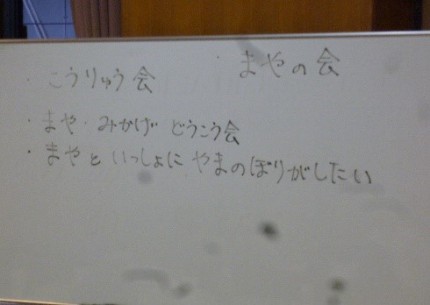 ・こうりゅう会　・まやの会
・まや・みかげ どうこう会
・まやと いっしょに やまのぼりがしたい